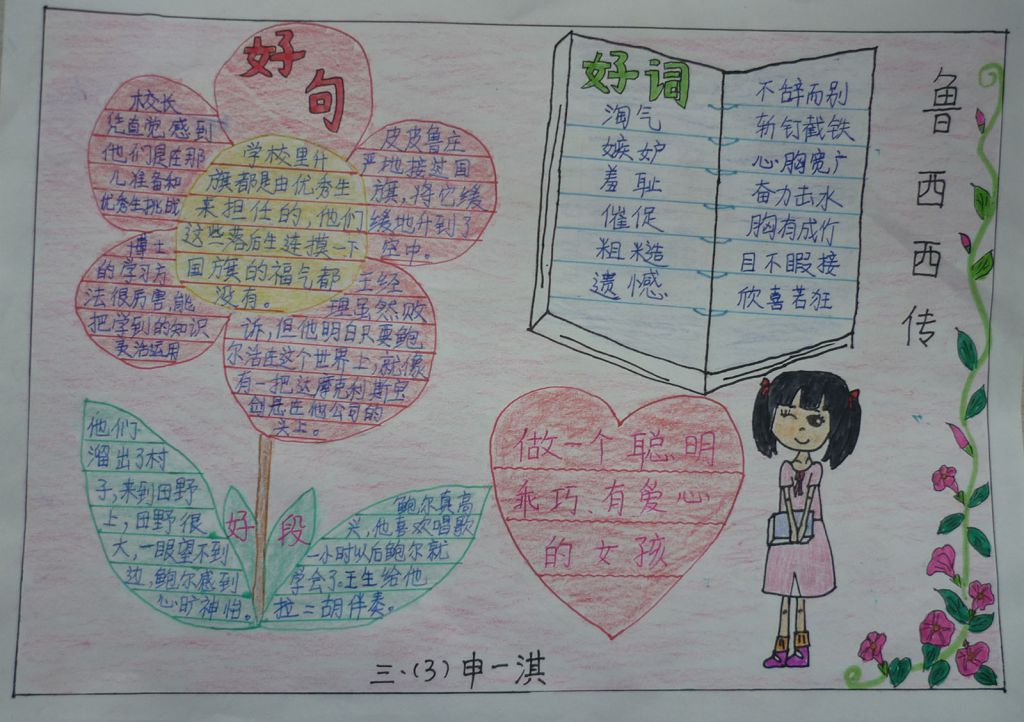 好句
校长
凭直觉感到
他们是在那
儿准备和
优秀生挑战
学校里升
旗都是由优秀生
来担任的,他们
这些落后生连摸一下
国旗的福气都
没有。
皮皮鲁庄
严地接过国
旗,将它缓
缓地升到了
空中。
博士
的学习方
法很厉害,能
把学到的知识
灵活运用
王经
理虽然败
诉,但他明白只要鲍
尔浩在这个世界上,就像
有一把达摩克利斯宝
剑悬在他公司的
头上。
他们
溜出了村
子,来到田野
上,田野很
大,一眼望不到
边,鲍尔感到
心旷神怡。
好段
鲍尔真高
兴,他喜欢唱歌
一小时以后鲍尔就
学会了。王生给他
拉二胡伴奏。
好词
淘气
嫉妒
羞耻
催促
粗糙
遗憾
不辞而别
斩钉截铁
心胸宽广
奋力击水
胸有成竹
目不暇接
欣喜若狂
鲁西西传
做一个聪明
乖巧、有爱心
的女孩
三.(3)申一淇